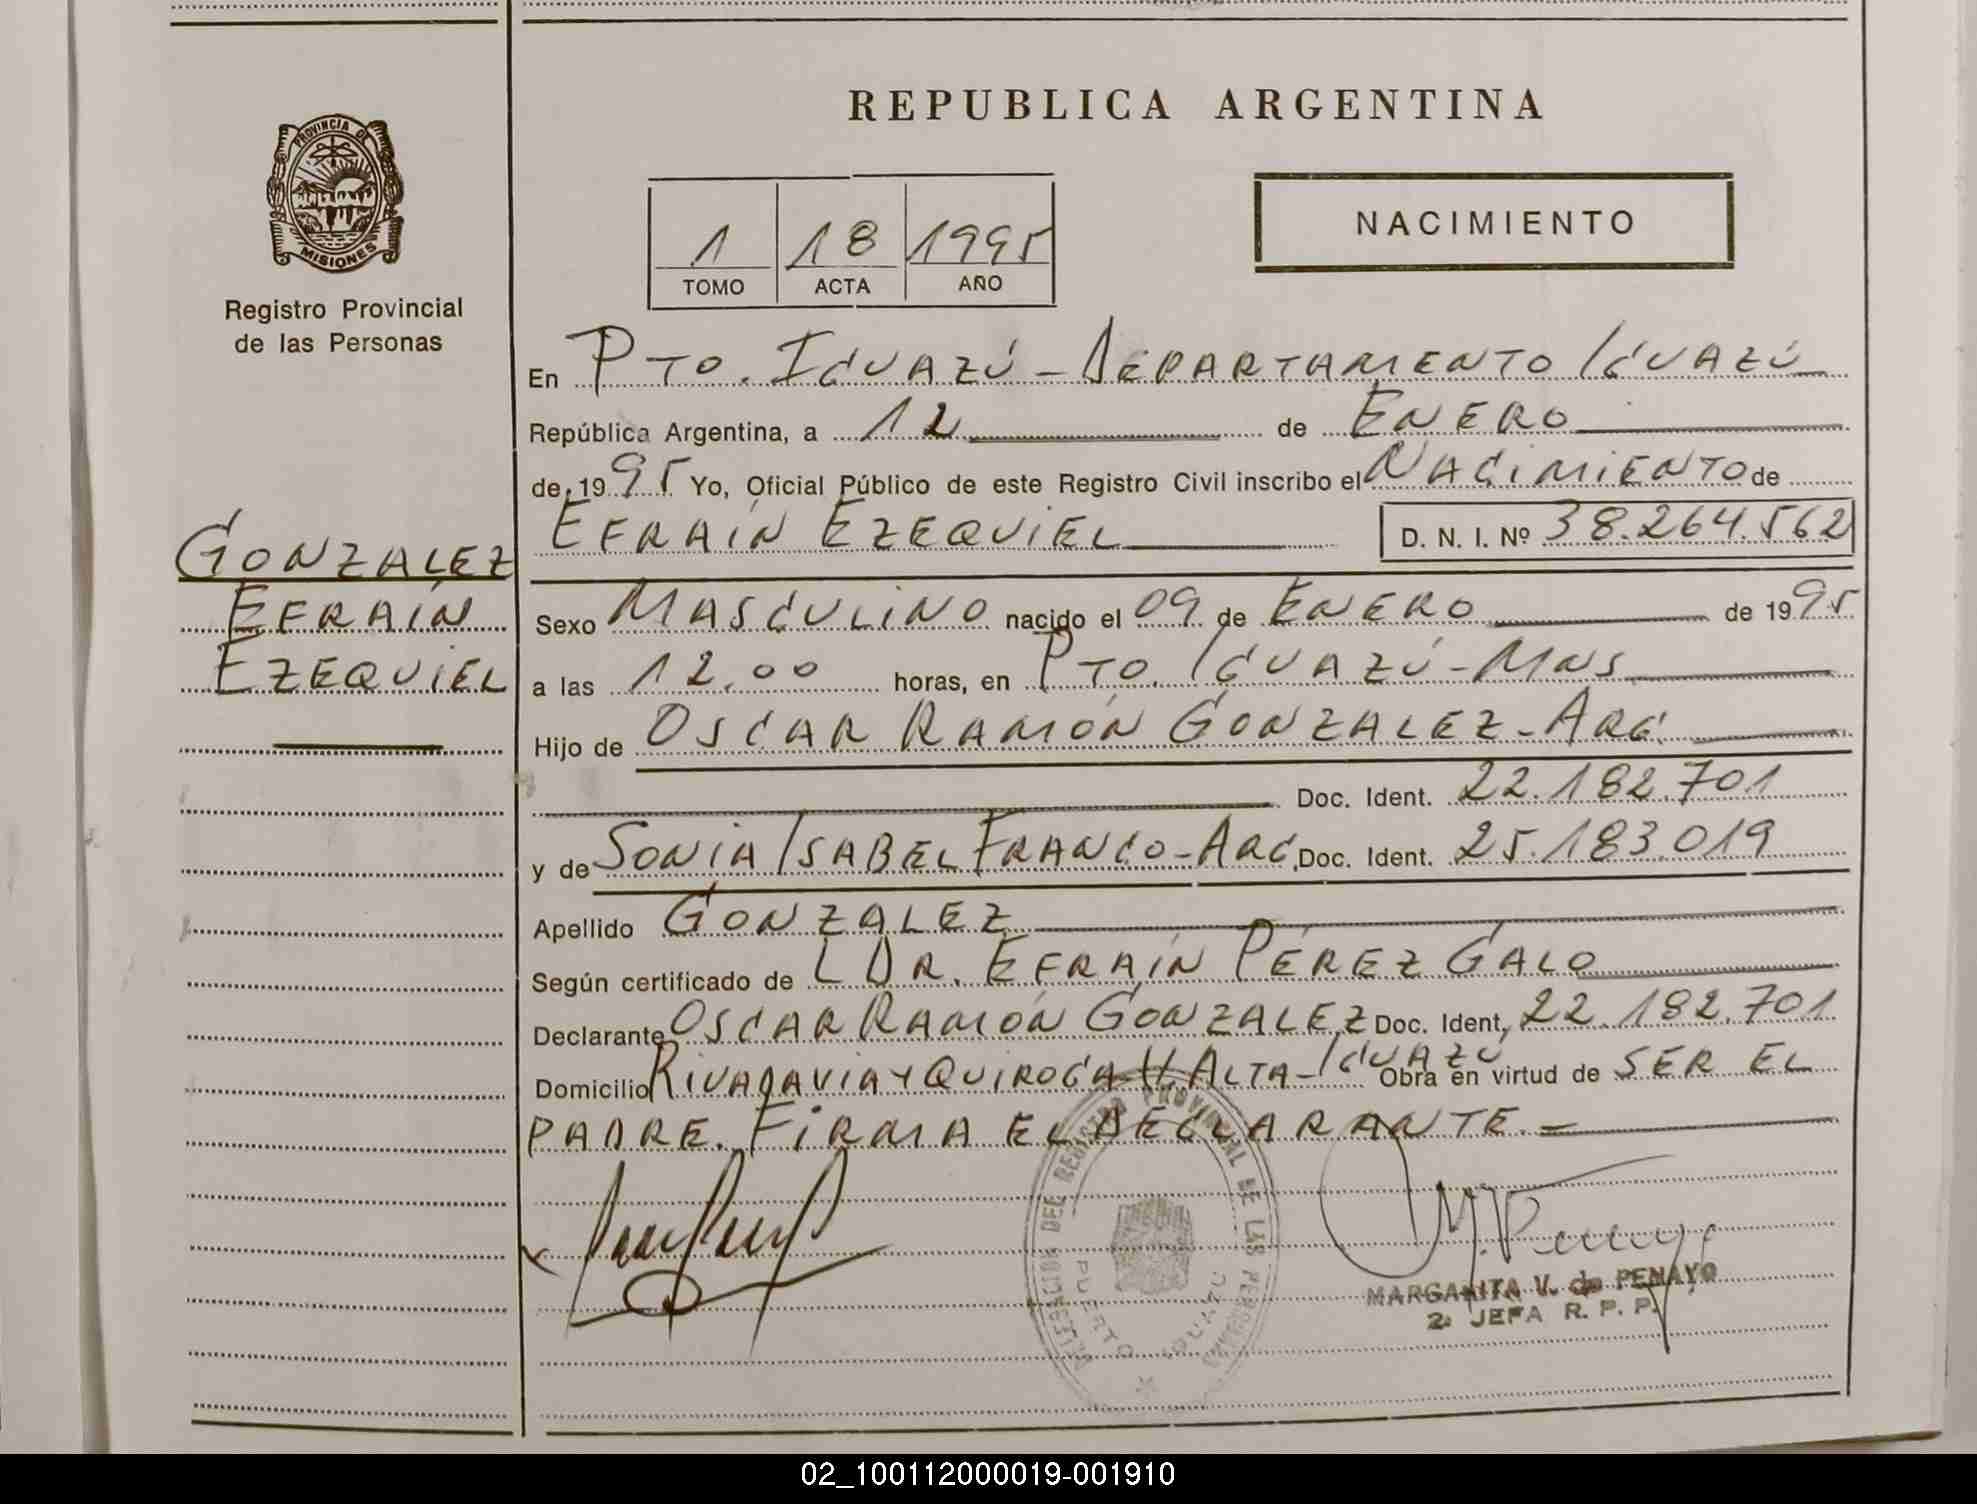 REPUBLICA ARGENTINA
PROVINCIA DE
MISIONES
Registro Provincial
de las Personas
NACIMIENTO
1 18 1995
TOMO ACTA AÑO
En PTO. IGUAZÚ - DEPARTAMENTO IGUAZÚ
República Argentina, a 12 de ENERO
de 1995 Yo, Oficial Público de este Registro Civil inscribo el NACIMIENTO de
EFRAÍN EZEQUIEL D. N. I. Nº 38.264.562
GONZALEZ
EFRAÍN
EZEQUIEL
Sexo MASCULINO nacido el 09 de ENERO de 1995
a las 12.00 horas, en PTO. IGUAZÚ - MNS
Hijo de OSCAR RAMÓN GONZALEZ - ARG.
Doc. Ident. 22.182.701
y de SONIA ISABEL FRANCO - ARG. Doc. Ident. 25.183.019
Apellido GONZALEZ
Según certificado de DR. EFRAÍN PÉREZ GALO
Declarante OSCAR RAMÓN GONZALEZ Doc. Ident, 22.182.701
Domicilio RIVADAVIA Y QUIROGA V. ALTA - IGUAZÚ Obra en virtud de SER EL
PADRE. FIRMA EL DECLARANTE. =
DELEGACION DEL REGISTRO PROVINCIAL DE LAS PERSONAS
PUERTO IGUAZU
MARGARITA V. de PENAYO
2ª JEFA R. P. P.
02_100112000019-001910